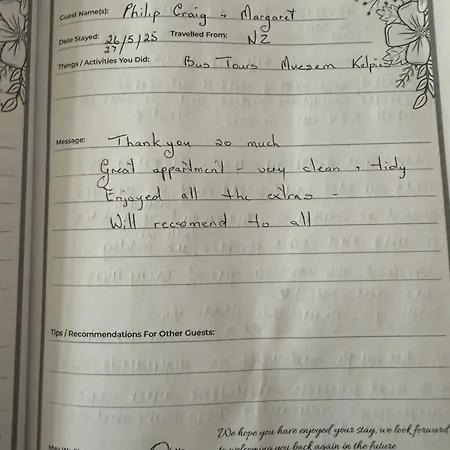 Guest Name(s): Philip Craig + Margaret
Date Stayed: 26/5/25 Travelled From: NZ
27
Things / Activities You Did: Bus Tours Museem Kelpies
Message: Thank you so much
Great appartment - very clean + tidy
Enjoyed all the extras -
Will recomend to all
Tips / Recommendations For Other Guests:
We hope you have enjoyed your stay, we look forward
to welcoming you back again in the future